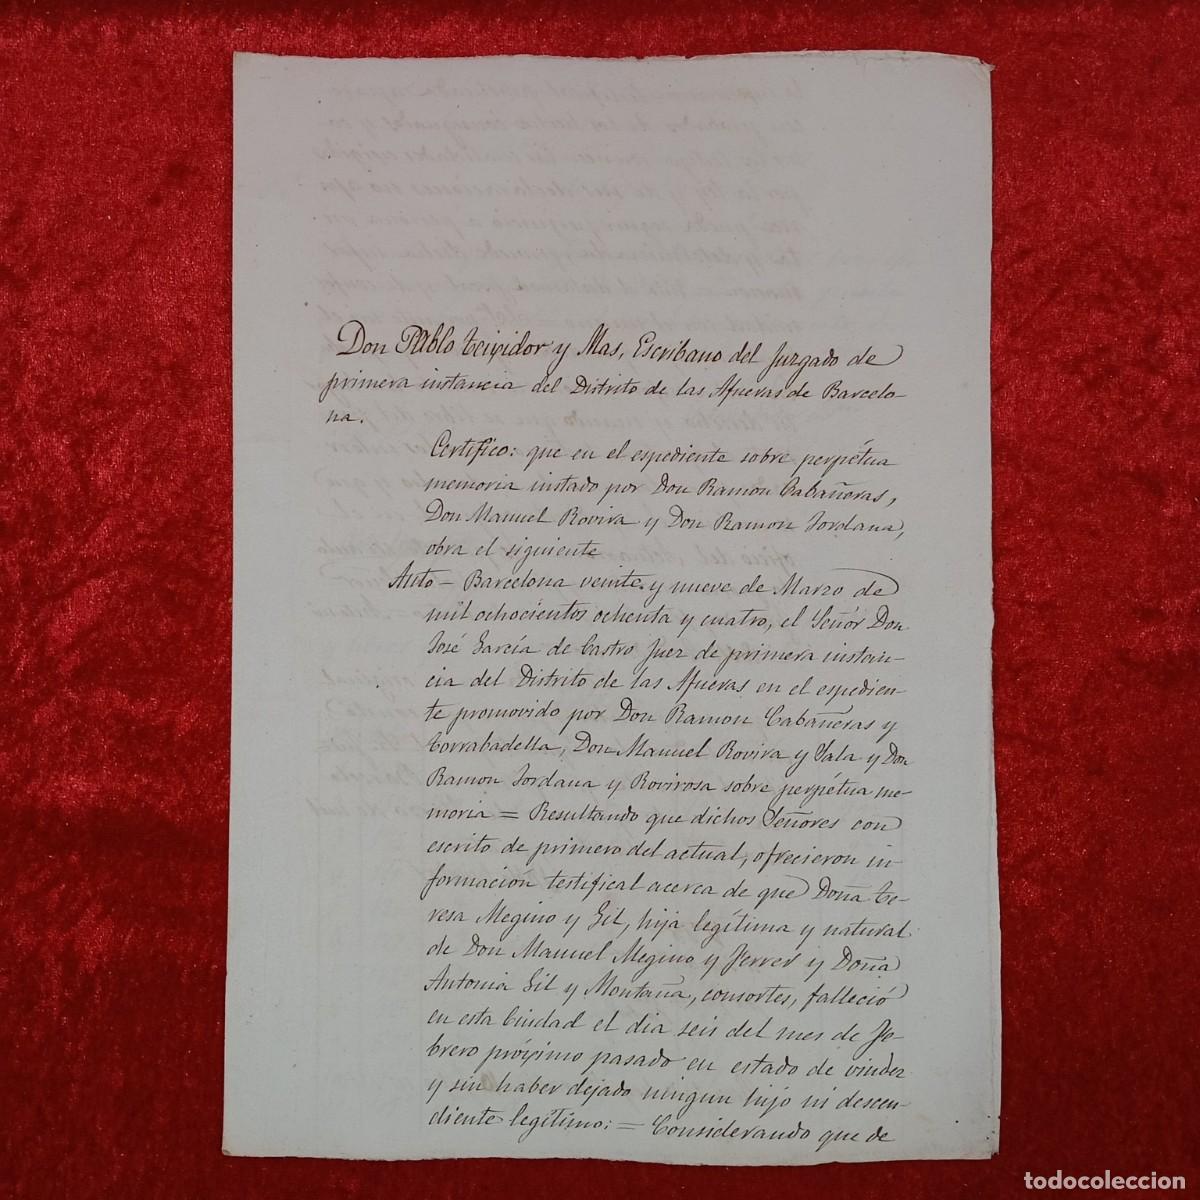 Don Pablo Teixidor y Mas, Escribano del Juzgado de
primera instancia del Distrito de las Afueras de Barcelo-
na.
Certifico: que en el espediente sobre perpétua
memoria instado por Don Ramon Cabañeras,
Don Manuel Rovira y Don Ramon Jordana,
obra el siguiente
Auto - Barcelona veinte y nueve de Marzo de
mil ochocientos ochenta y cuatro, el Señor Don
José García de Castro Juez de primera instan-
cia del Distrito de las Afueras en el espedien-
te promovido por Don Ramon Cabañeras y
Torrabadella, Don Manuel Rovira y Sala y Don
Ramon Jordana y Rovirosa sobre perpétua me-
moria = Resultando que dichos Señores con
escrito de primero del actual, ofrecieron in-
formacion testifical acerca de que Doña Te-
resa Megino y Gil, hija legítima y natural
de Don Manuel Megino y Ferrer y Doña
Antonia Gil y Montaña, consortes, falleció
en esta Ciudad el dia seis del mes de Fe-
brero próximo pasado en estado de viudez
y sin haber dejado ningun hijo ni descen-
diente legítimo: = Considerando que de
todocoleccion